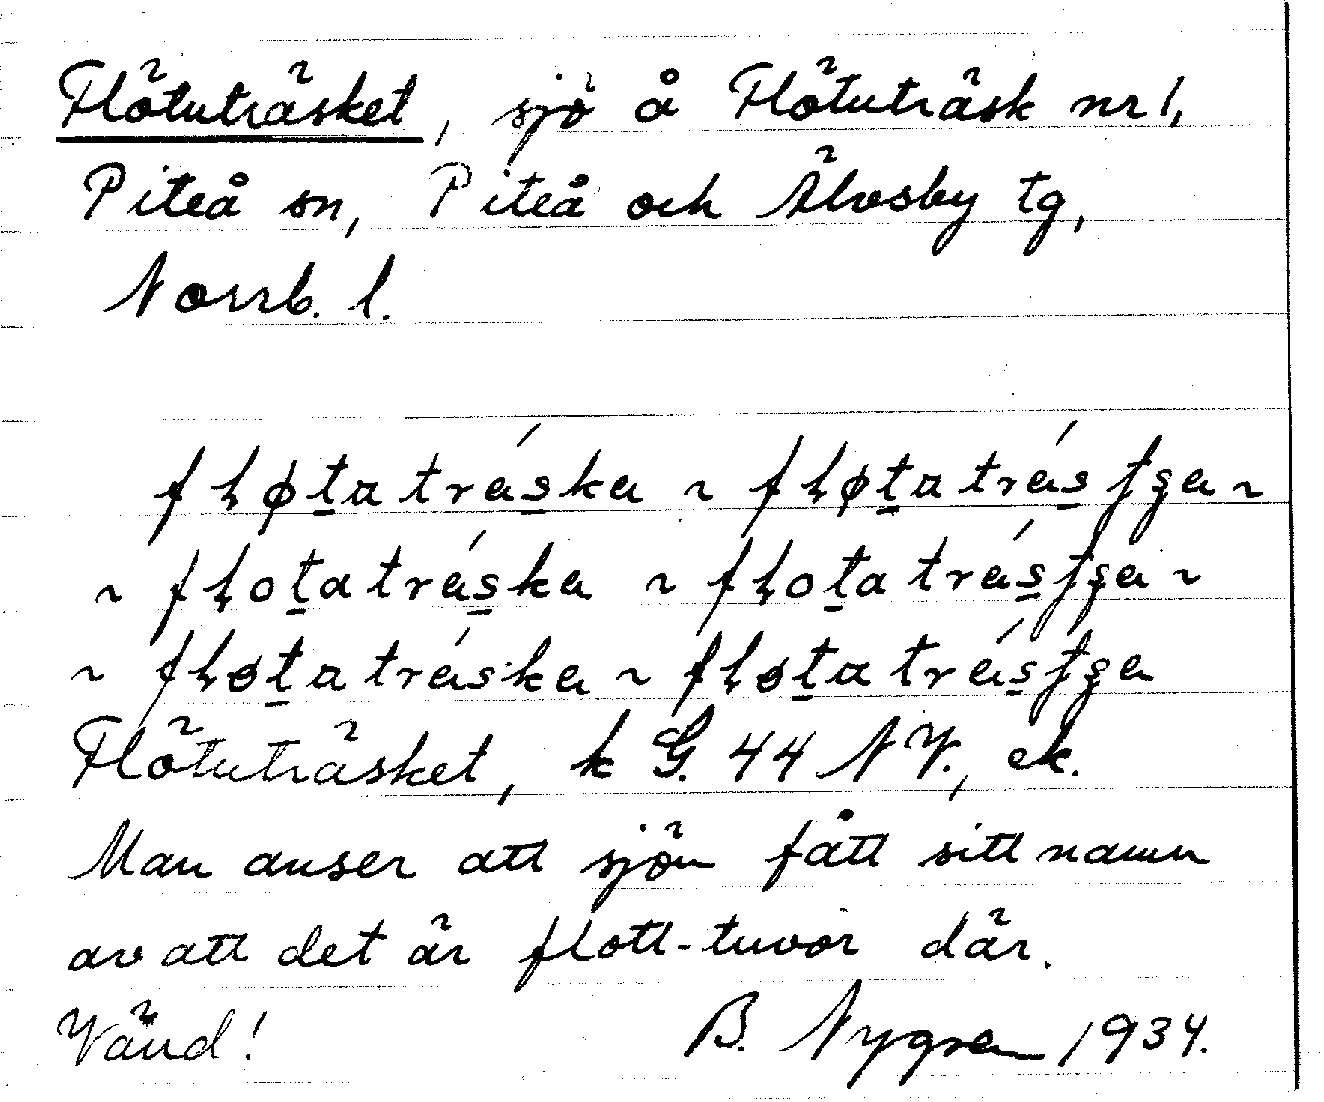 Flötuträsket, sjö å Flötuträsk nr 1,
Piteå sn, Piteå och Älvsby tg,
Norrb. l.
fløta tráska ~ fløta trásʃga ~
~ flota tráska ~ flota trásʃga ~
~ fløta tráska ~ fløta trásʃga
Flötuträsket, k G. 44 NV., ek.
Man anser att sjön fått sitt namn
av att det är flott-tuvor där.
Vänd! B. Nygren 1934.